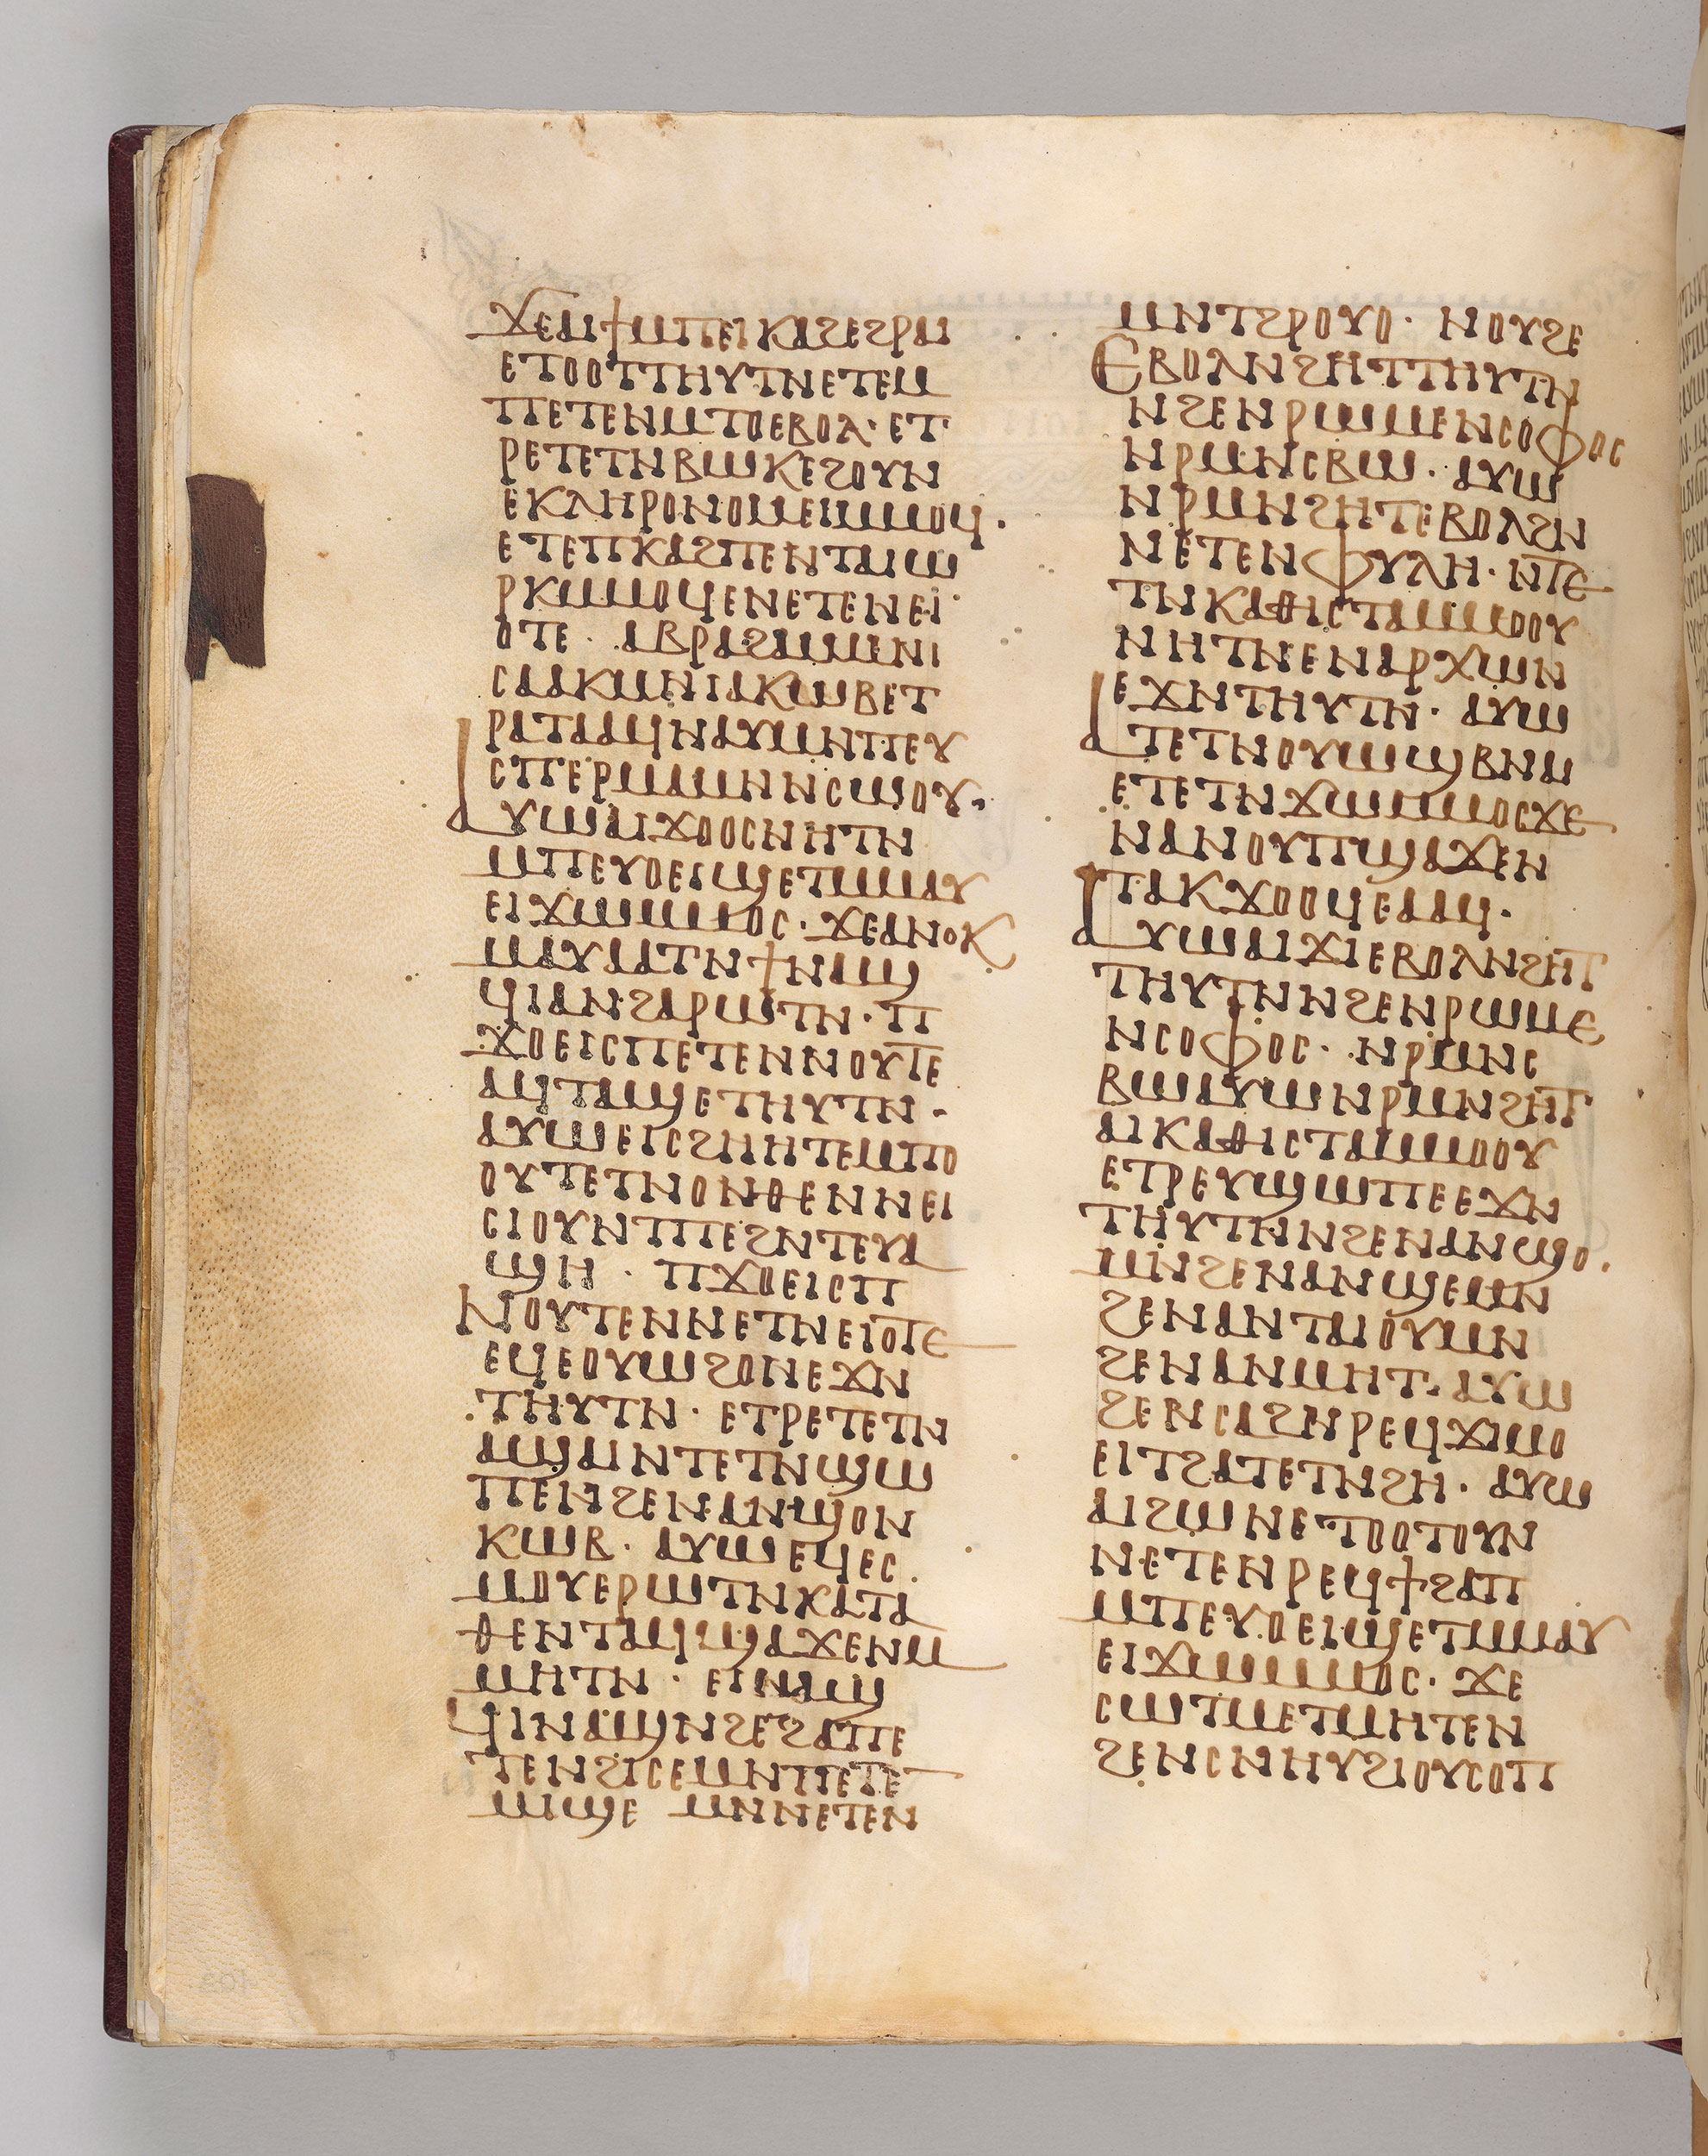 ϫⲉⲁⲓϯⲙⲡⲉⲓⲕⲁϩⲉϩⲣⲁⲓ
ⲉⲧⲟⲟⲧⲧⲏⲩⲧⲛⲉⲧⲉⲙ
ⲡⲉⲧⲉⲛⲙⲧⲟⲉⲃⲟⲗ· ⲉⲧ
ⲣⲉⲧⲉⲧⲛⲃⲱⲕⲉϩⲟⲩⲛ
ⲉⲕⲗⲏⲣⲟⲛⲟⲙⲉⲓⲙⲙⲟϥ·
ⲉⲧⲉⲡⲕⲁϩⲡⲉⲛⲧⲁⲓⲱ
ⲣⲕⲙⲙⲟϥⲉⲛⲉⲧⲉⲛⲉⲓ
ⲟⲧⲉ· ⲁⲃⲣⲁϩⲁⲙⲙⲛⲓ
ⲥⲁⲁⲕⲙⲛⲓⲁⲕⲱⲃⲉⲧ
ⲣⲁⲧⲁⲁϥⲛⲁⲩⲙⲛⲡⲉⲩ
ⲥⲡⲉⲣⲙⲁⲙⲛⲛⲥⲱⲟⲩ·
ⲁⲩⲱⲁⲓϫⲟⲟⲥⲛⲏⲧⲛ
ⲙⲡⲉⲩⲟⲉⲓϣⲉⲧⲙⲙⲁⲩ
ⲉⲓϫⲱⲙⲙⲟⲥ· ϫⲉⲁⲛⲟⲕ
ⲙⲁⲩⲁⲁⲧⲛϯⲛⲁϣ
ϥⲓⲁⲛϩⲁⲣⲱⲧⲛ· ⲡ
ϫⲟⲉⲓⲥⲡⲉⲧⲉⲛⲛⲟⲩⲧⲉ
ⲁϥⲧⲁϣⲉⲧⲏⲩⲧⲛ·
ⲁⲩⲱⲉⲓⲥϩⲏⲏⲧⲉⲙⲡⲟ
ⲟⲩⲧⲉⲧⲛⲟⲛⲑⲉⲛⲛⲉⲓ
ⲥⲓⲟⲩⲛⲧⲡⲉϩⲛⲧⲉⲩⲁ
ϣⲏ· ⲡϫⲟⲉⲓⲥⲡ
ⲛⲟⲩⲧⲉⲛⲛⲉⲧⲛⲉⲓⲟⲧⲉ
ⲉϥⲉⲟⲩⲱϩⲟⲛⲉϫⲛ
ⲧⲏⲩⲧⲛ· ⲉⲧⲣⲉⲧⲉⲧⲛ
ⲁϣⲁⲓⲛⲧⲉⲧⲛϣⲱ
ⲡⲉⲛϩⲉⲛⲁⲛϣⲟⲛ
ⲕⲱⲃ· ⲁⲩⲱⲉϥⲉⲥ
ⲙⲟⲩⲉⲣⲱⲧⲛⲕⲁⲧⲁ
ⲑⲉⲛⲧⲁϥϣⲁϫⲉⲛⲙ
ⲙⲏⲧⲛ· ⲉⲓⲛⲁϣ
ϥⲓⲛⲁϣⲛϩⲉϩⲁⲡⲉ
ⲧⲉⲛϩⲓⲥⲉⲙⲛⲡⲉⲧⲉ
ⲙⲓϣⲉ ⲙⲛⲛⲉⲧⲉⲛ
ⲙⲛⲧϩⲣⲟⲩⲟ· ⲛⲟⲩϩⲉ
ⲉⲃⲟⲗⲛϩⲏⲧⲧⲏⲩⲧⲛ
ⲛϩⲉⲛⲣⲱⲙⲉⲛⲥⲟⲫⲟⲥ
ⲛⲣⲙⲛⲥⲃⲱ· ⲁⲩⲱ
ⲛⲣⲙⲛϩⲏⲧⲉⲃⲟⲗϩⲛ
ⲛⲉⲧⲉⲛⲫⲩⲗⲏ· ⲛⲧⲉ
ⲧⲛⲕⲁⲑⲓⲥⲧⲁⲙⲙⲟⲟⲩ
ⲛⲏⲧⲛⲉⲛⲁⲣⲭⲱⲛ
ⲉϫⲛⲧⲏⲩⲧⲛ· ⲁⲩⲱ
ⲁⲧⲉⲧⲛⲟⲩⲱϣⲃⲛⲁⲓ
ⲉⲧⲉⲧⲛϫⲱⲙⲙⲟⲥϫⲉ
ⲛⲁⲛⲟⲩⲡϣⲁϫⲉⲛ
ⲧⲁⲕϫⲟⲟϥⲉⲁⲁϥ·
ⲁⲩⲱⲁⲓϫⲓⲉⲃⲟⲗⲛϩⲏⲧ
ⲧⲏⲩⲧⲛⲛϩⲉⲛⲣⲱⲙⲉ
ⲛⲥⲟⲫⲟⲥ· ⲛⲣⲙⲛⲥ
ⲃⲱⲁⲩⲱⲛⲣⲙⲛϩⲏⲧ
ⲁⲓⲕⲁⲑⲓⲥⲧⲁⲙⲙⲟⲟⲩ
ⲉⲧⲣⲉⲩϣⲱⲡⲉⲉϫⲛ
ⲧⲏⲩⲧⲛⲛϩⲉⲛⲁⲛϣⲟ·
ⲙⲛϩⲉⲛⲁⲛϣⲉⲙⲛ
ϩⲉⲛⲁⲛⲧⲁⲓⲟⲩⲙⲛ
ϩⲉⲛⲁⲛⲙⲏⲧ· ⲁⲩⲱ
ϩⲉⲛⲥⲁϩⲛⲣⲉϥϫⲓⲙⲟ
ⲉⲓⲧϩⲁⲧⲉⲧⲛϩⲏ· ⲁⲩⲱ
ⲁⲓϩⲱⲛⲉⲧⲟⲟⲧⲟⲩⲛ
ⲛⲉⲧⲉⲛⲣⲉϥϯϩⲁⲡ
ⲙⲡⲉⲩⲟⲉⲓϣⲉⲧⲙⲙⲁⲩ
ⲉⲓϫⲱⲙⲙⲟⲥ· ϫⲉ
ⲥⲱⲧⲙⲉⲧⲙⲏⲧⲉⲛ
ϩⲉⲛⲥⲛⲏⲩϩⲓⲟⲩⲥⲟⲡ